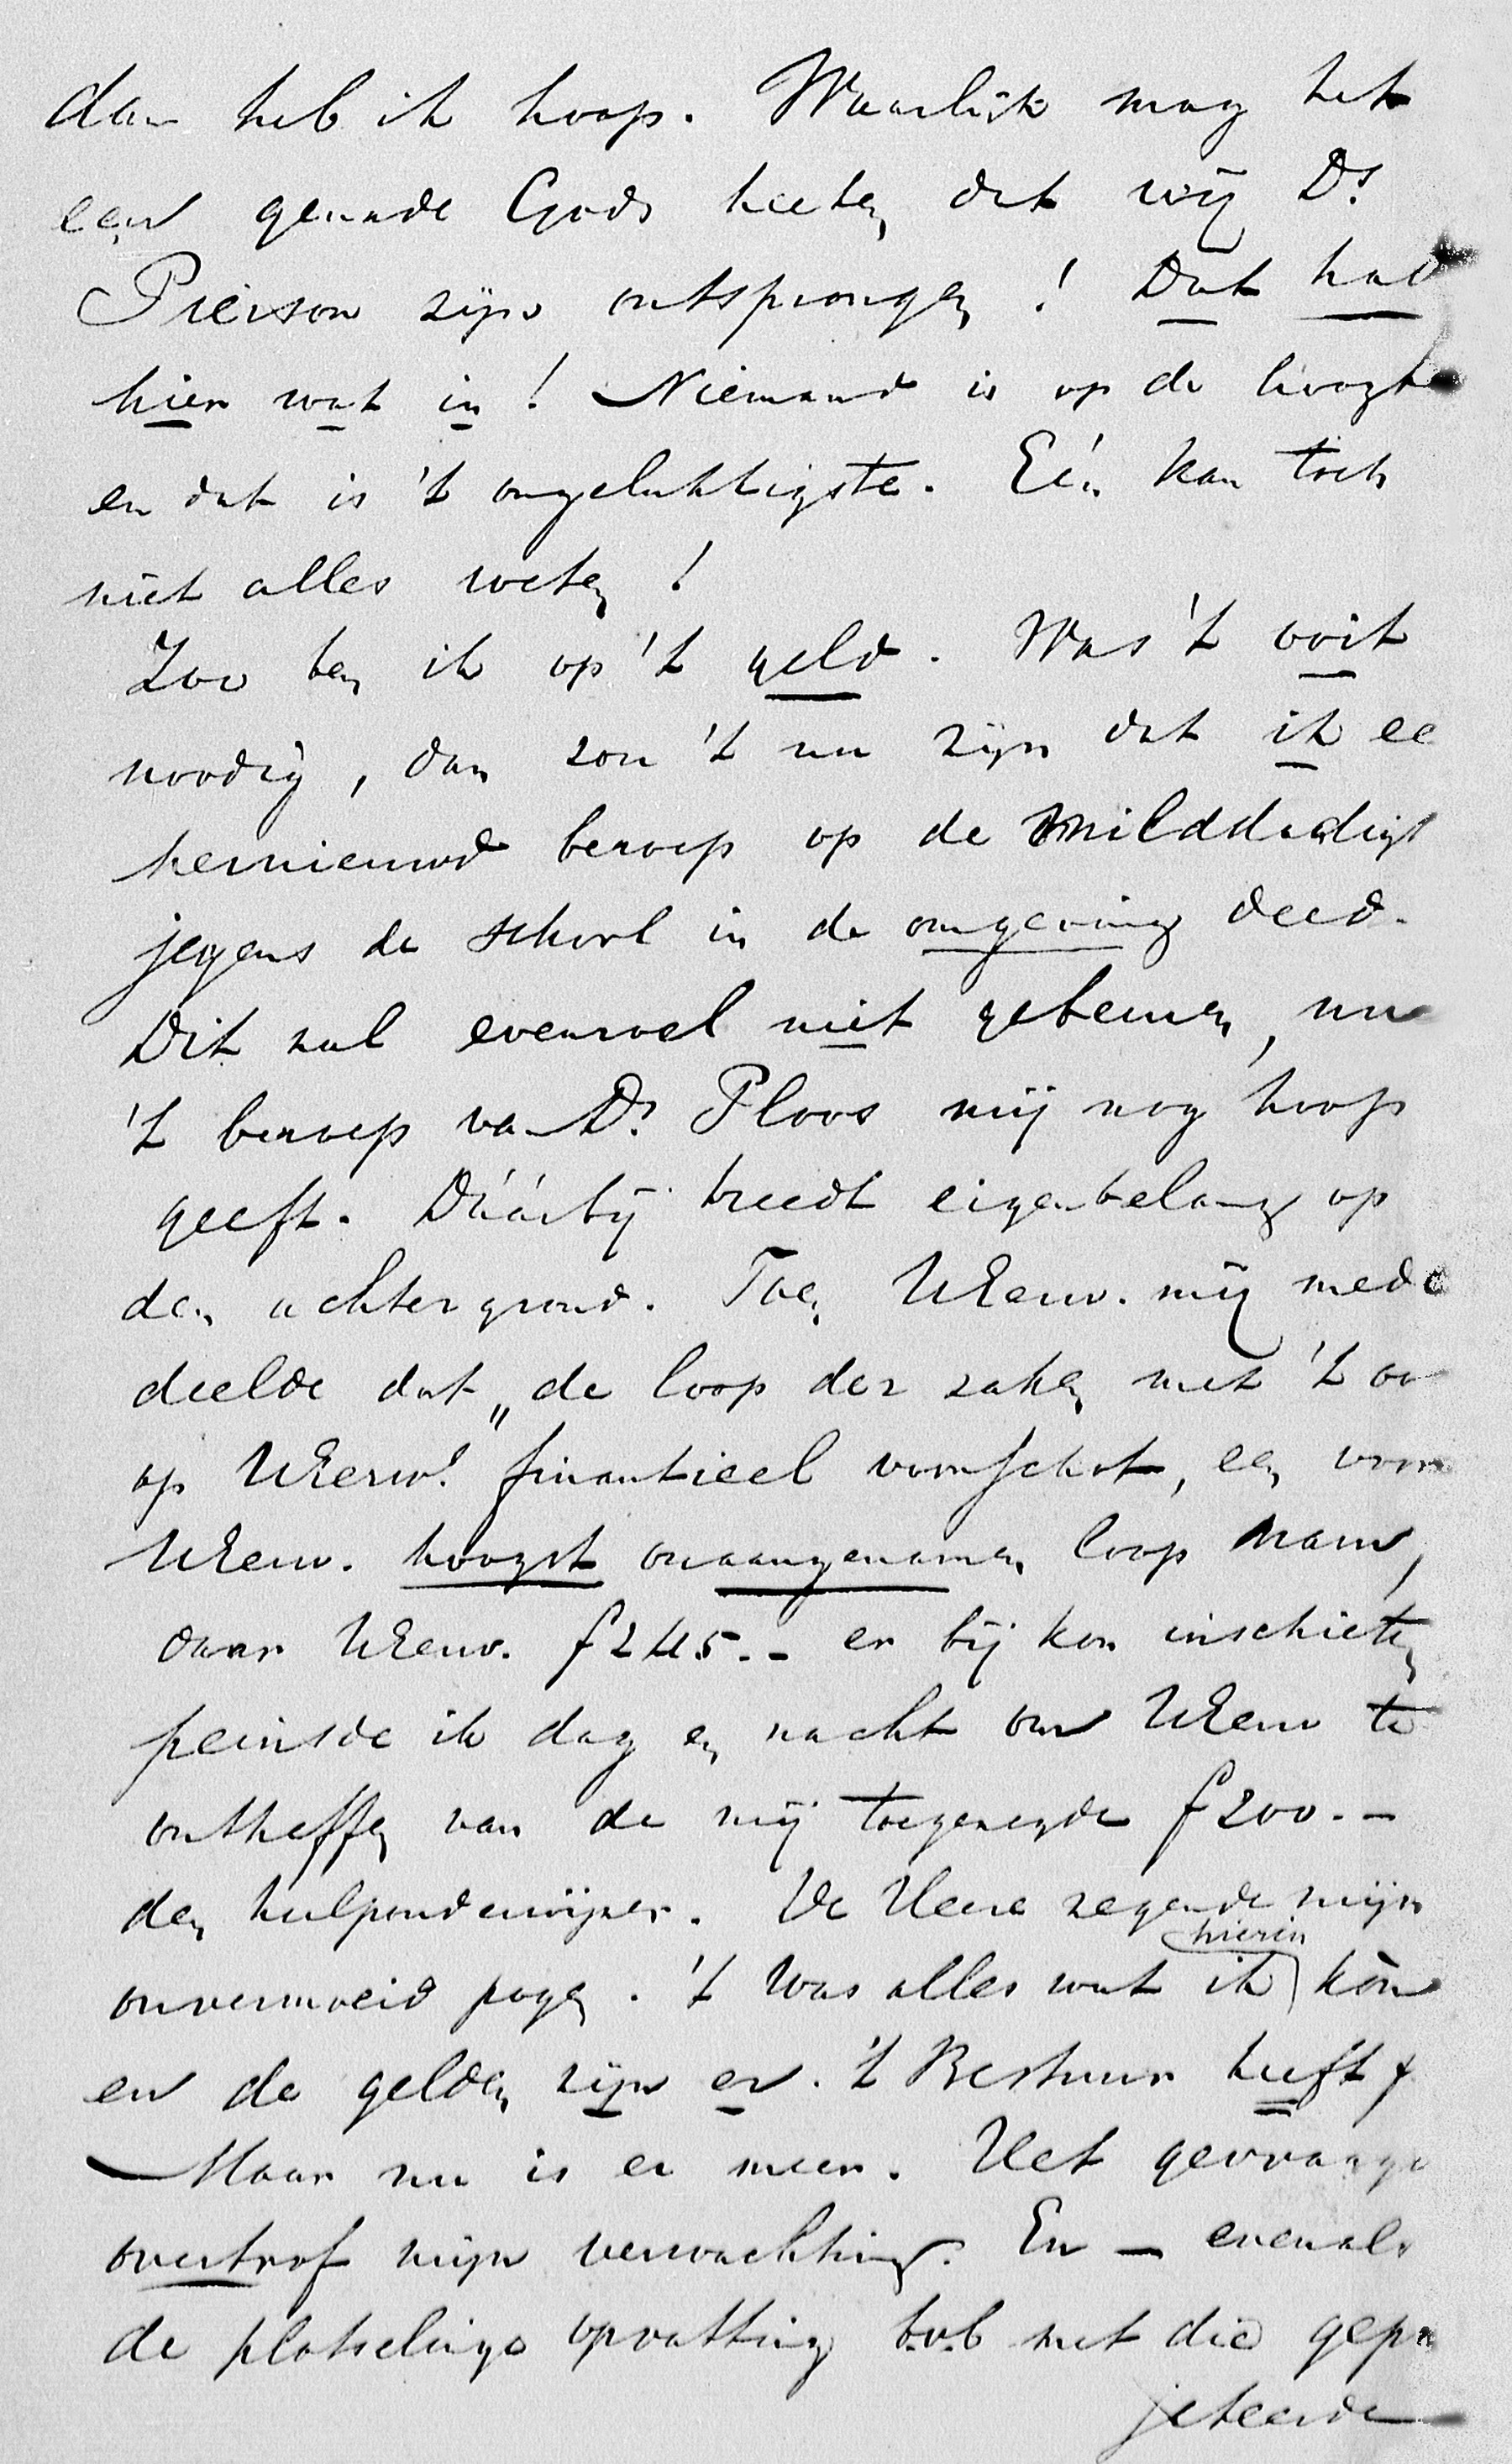 dan heb ik hoop. Waarlijk mag het
een genade Gods heeten dat wij Ds
Pierson zijn ontsprongen! Dat had
hier wat in! Niemand is op de hoogte
en dat is 't ongelukkigste. Eén kan toch
niet alles weten!
Zoo ben ik op 't geld. Was 't ooit
noodig, dan zou 't nu zijn dat ik ee
hernieuwd beroep op de milddadigh
jegens de school in de omgeving deed.
Dit zal evenwel niet gebeuren, nu
't beroep van Ds Ploos mij nog hoop
geeft. Dáárbij treedt eigenbelang op
den achtergrond. Toen UEerw. mij mede
deelde dat „de loop der zaken met 't oo
op UEerw.s financieel voorschot, een voor
UEerw. hoogst onaangenamen loop nam,
daar UEerw. f 245.- er bij kon inschieten
peinsde ik dag en nacht om UEerw te
ontheffen van de mij toegezegde f 200.-
den hulponderwijzer. De Heere zegende mijn
onvermoeid pogen. 't Was alles wat ik hierin kòn
en de gelden zijn er. 't Bestuur heeft f
Maar nu is er meer. Het gevraagd
overtrof mijn verwachting. En — evenals
de plotselinge opvatting t.o.b met die gepro
jeteerde